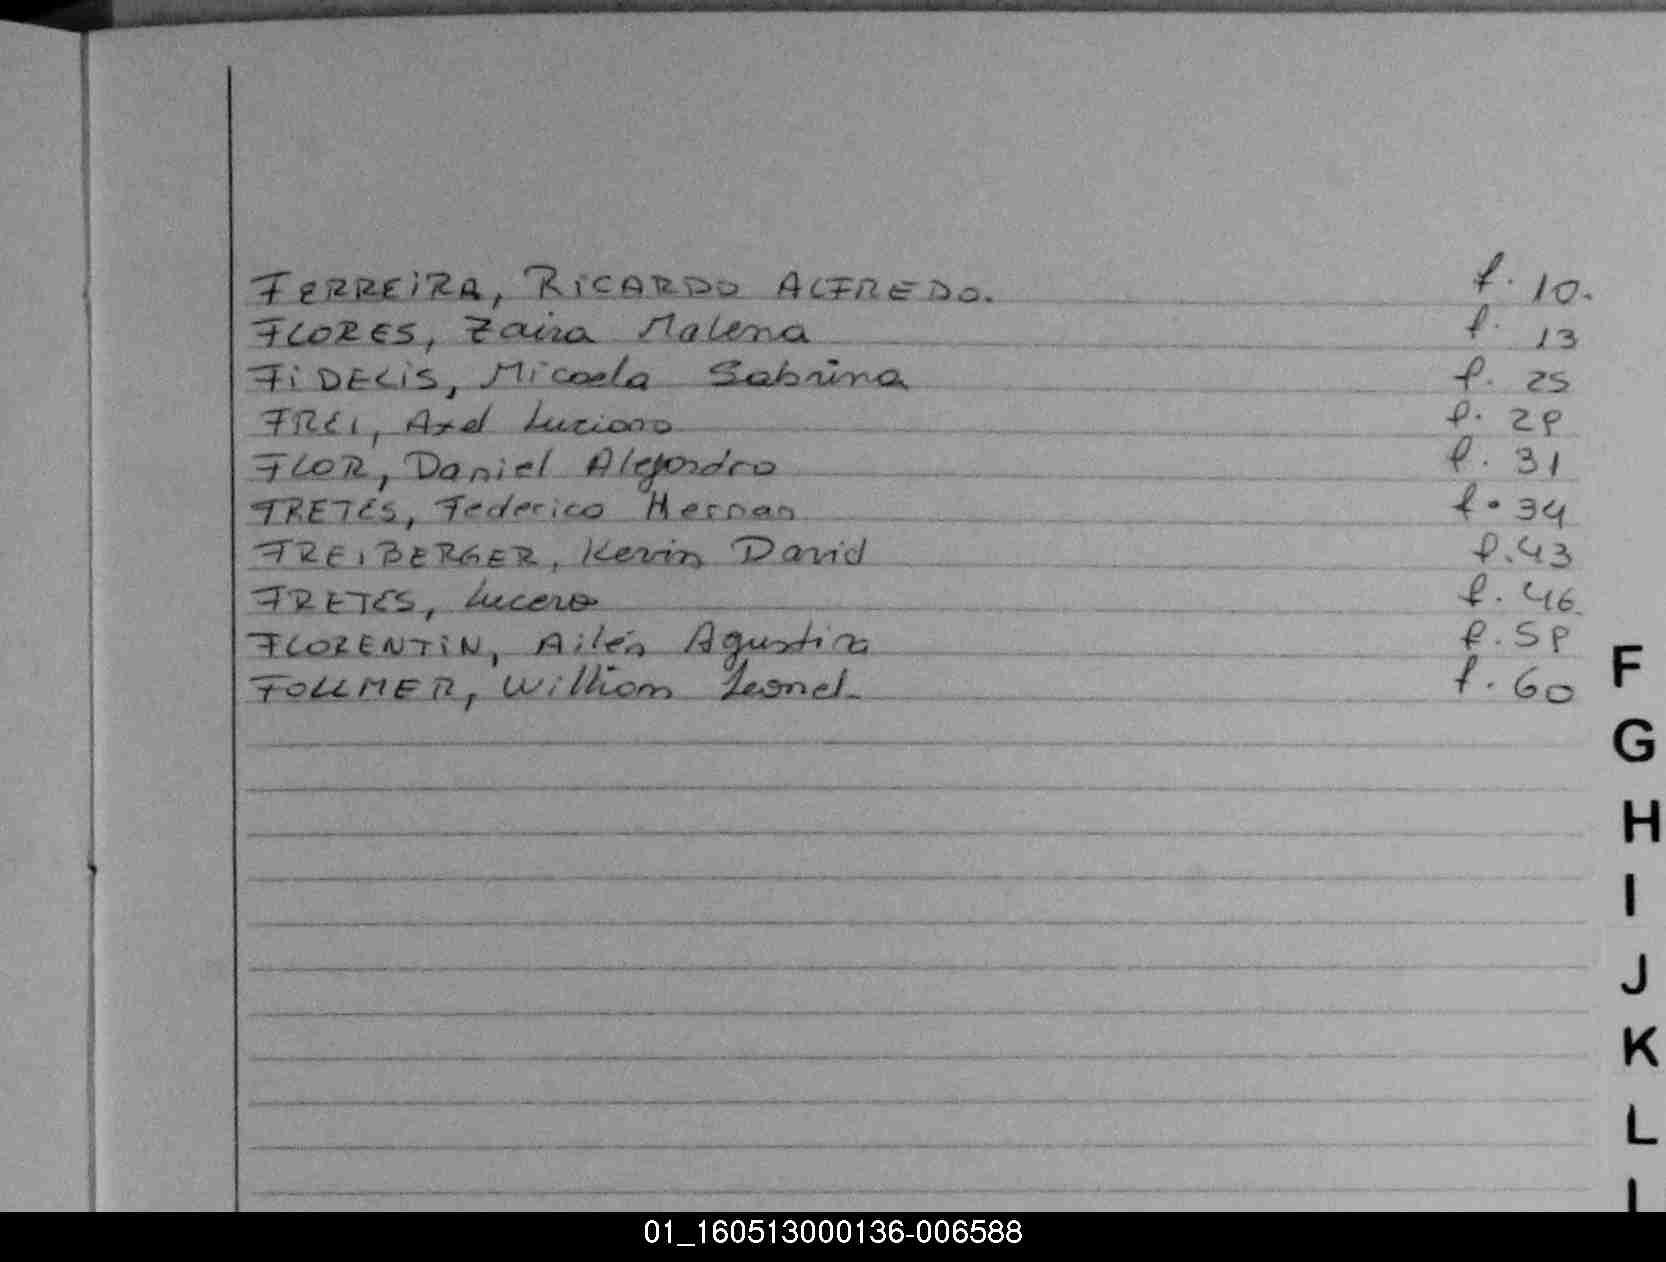 FERREIRA, RICARDO ALFREDO. f. 10.
FLORES, Zaira Malena f. 13
FIDELIS, Micaela Sabrina f. 25
FREI, Axel Luciano f. 29
FLOR, Daniel Alejandro f. 31
FRETES, Federico Hernan f. 34
FREIBERGER, Kevin David f. 43
FRETES, Lucero f. 46
FLORENTIN, Ailén Agustina f. 59
FOLLMER, William Leonel f. 60
F
G
H
I
J
K
L
01_160513000136-006588